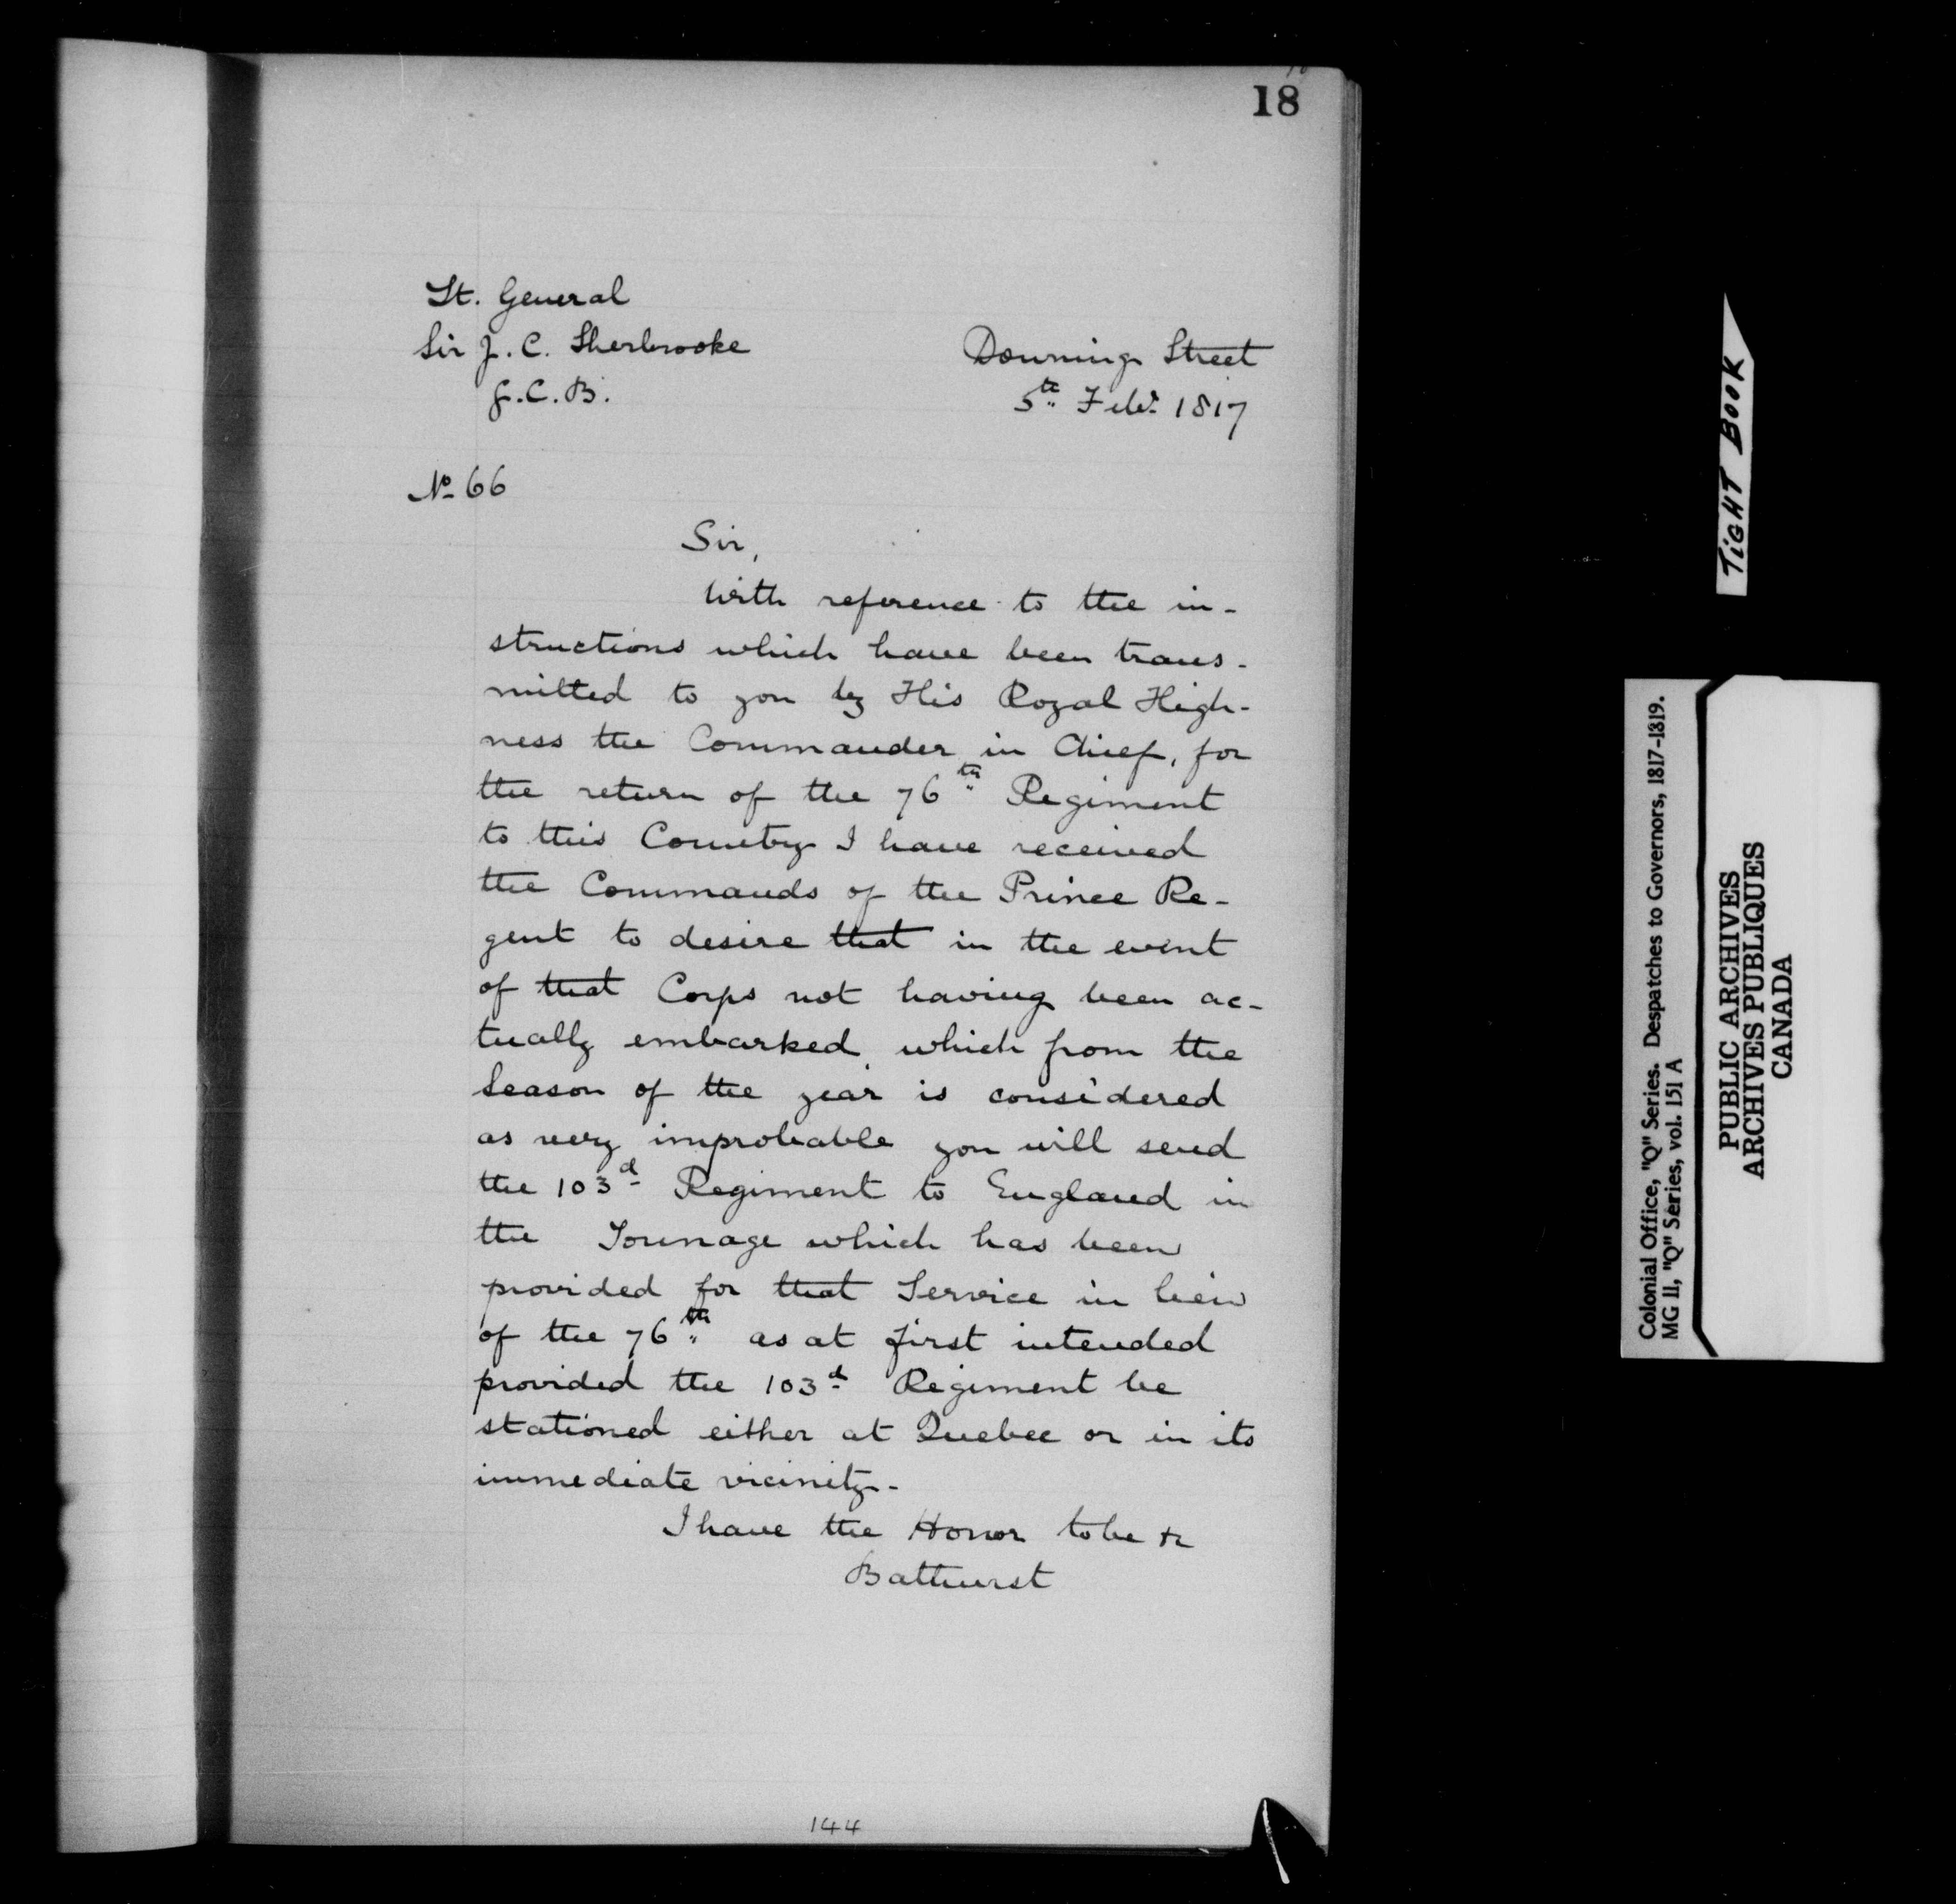 18
Lt. General
Sir J. C. Sherbrooke
G.C.B.
Downing Street
5th Feby. 1817
No 66
Sir,
With reference to the in-
structions which have been trans-
mitted to you by His Royal High-
ness the Commander in Chief, for
the return of the 76th Regiment
to this Country I have received
the Commands of the Prince Re-
gent to desire that in the event
of that Corps not having been ac-
tually embarked, which from the
Season of the year is considered
as very improbable you will send
the 103d Regiment to England in
the Tonnage which has been
provided for that Service in lieu
of the 76th as at first intended
provided the 103d Regiment be
stationed either at Quebec or in its
immediate vicinity-
I have the Honor to be &c
Bathurst
144
TIGHT BOOK
Colonial Office, "Q" Series. Despatches to Governors, 1817-1819.
MG 11, "Q" Series, vol. 151 A
PUBLIC ARCHIVES
ARCHIVES PUBLIQUES
CANADA